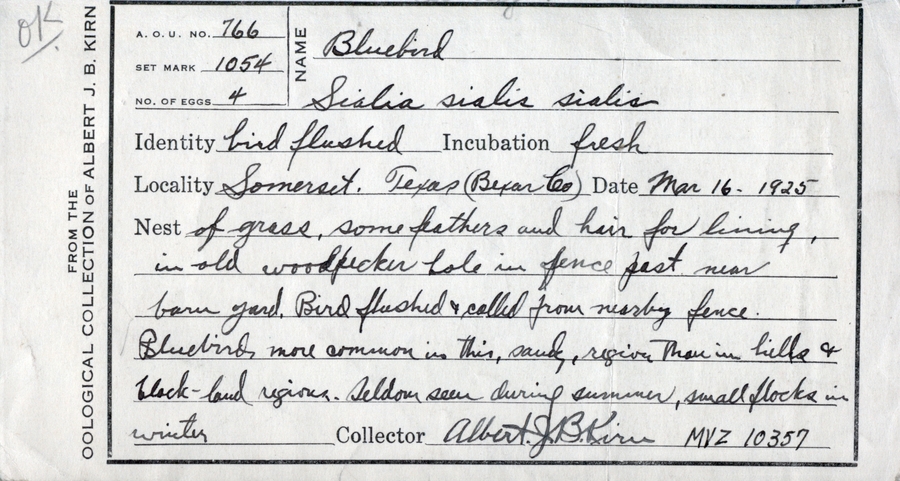 OK
FROM THE
OOLOGICAL COLLECTION OF ALBERT J. B. KIRN
A. O. U. NO. 766
SET MARK 1054
NO. OF EGGS 4
NAME Bluebird
Sialia sialis sialis
Identity bird flushed Incubation fresh
Locality Somerset. Texas (Bexar Co) Date Mar 16 - 1925
Nest of grass, some feathers and hair for lining,
in old woodpecker hole in fence post near
barn yard. Bird flushed & called from nearby fence.
Bluebirds more common in this, sandy, region than in hills &
black-land regions. Seldom seen during summer, small flocks in
winter Collector Albert. J. B. Kirn MVZ 10357